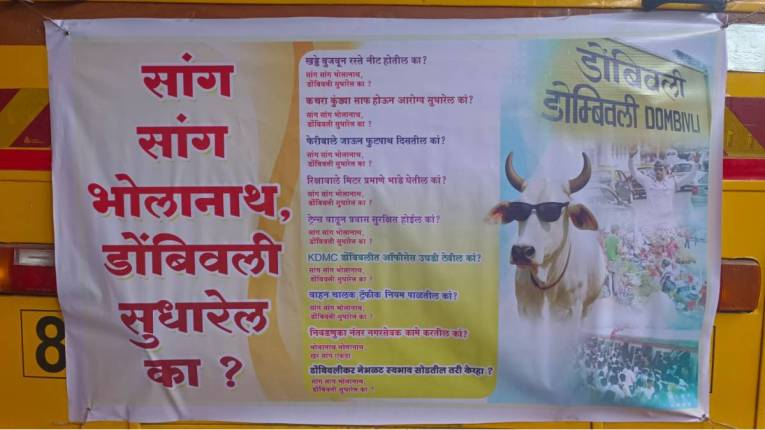 सांग
सांग
भोलानाथ,
डोंबिवली
सुधारेल
का ?
खड्डे बुजवून रस्ते नीट होतील का?
सांग सांग भोलानाथ,
डोंबिवली सुधारेल का ?
कचरा कुंड्या साफ होऊन आरोग्य सुधारेल कां?
सांग सांग भोलानाथ,
डोंबिवली सुधारेल का ?
फेरीवाले जाऊन फुटपाथ दिसतील कां?
सांग सांग भोलानाथ,
डोंबिवली सुधारेल का ?
रिक्षावाले मिटर प्रमाणे भाडे घेतील कां?
सांग सांग भोलानाथ,
डोंबिवली सुधारेल का ?
ट्रेन्स वाढून प्रवास सुरक्षित होईल कां?
सांग सांग भोलानाथ,
डोंबिवली सुधारेल का ?
KDMC डोंबिवलीत ऑफीसेस उघडी ठेवील कां?
सांग सांग भोलानाथ,
डोंबिवली सुधारेल का ?
वाहन चालक ट्रॅफीक नियम पाळतील कां?
सांग सांग भोलानाथ,
डोंबिवली सुधारेल का ?
निवडणुका नंतर नगरसेवक कामे करतील कां?
भोलानाथ भोलानाथ
खरं सांग एकदा
डोंबिवलीकर नेभळट स्वभाव सोडतील तरी केव्हा ?
सांग सांग भोलानाथ,
डोंबिवली सुधारेल का ?
डोंबिवली
डोम्बिवली DOMBIVLI
8